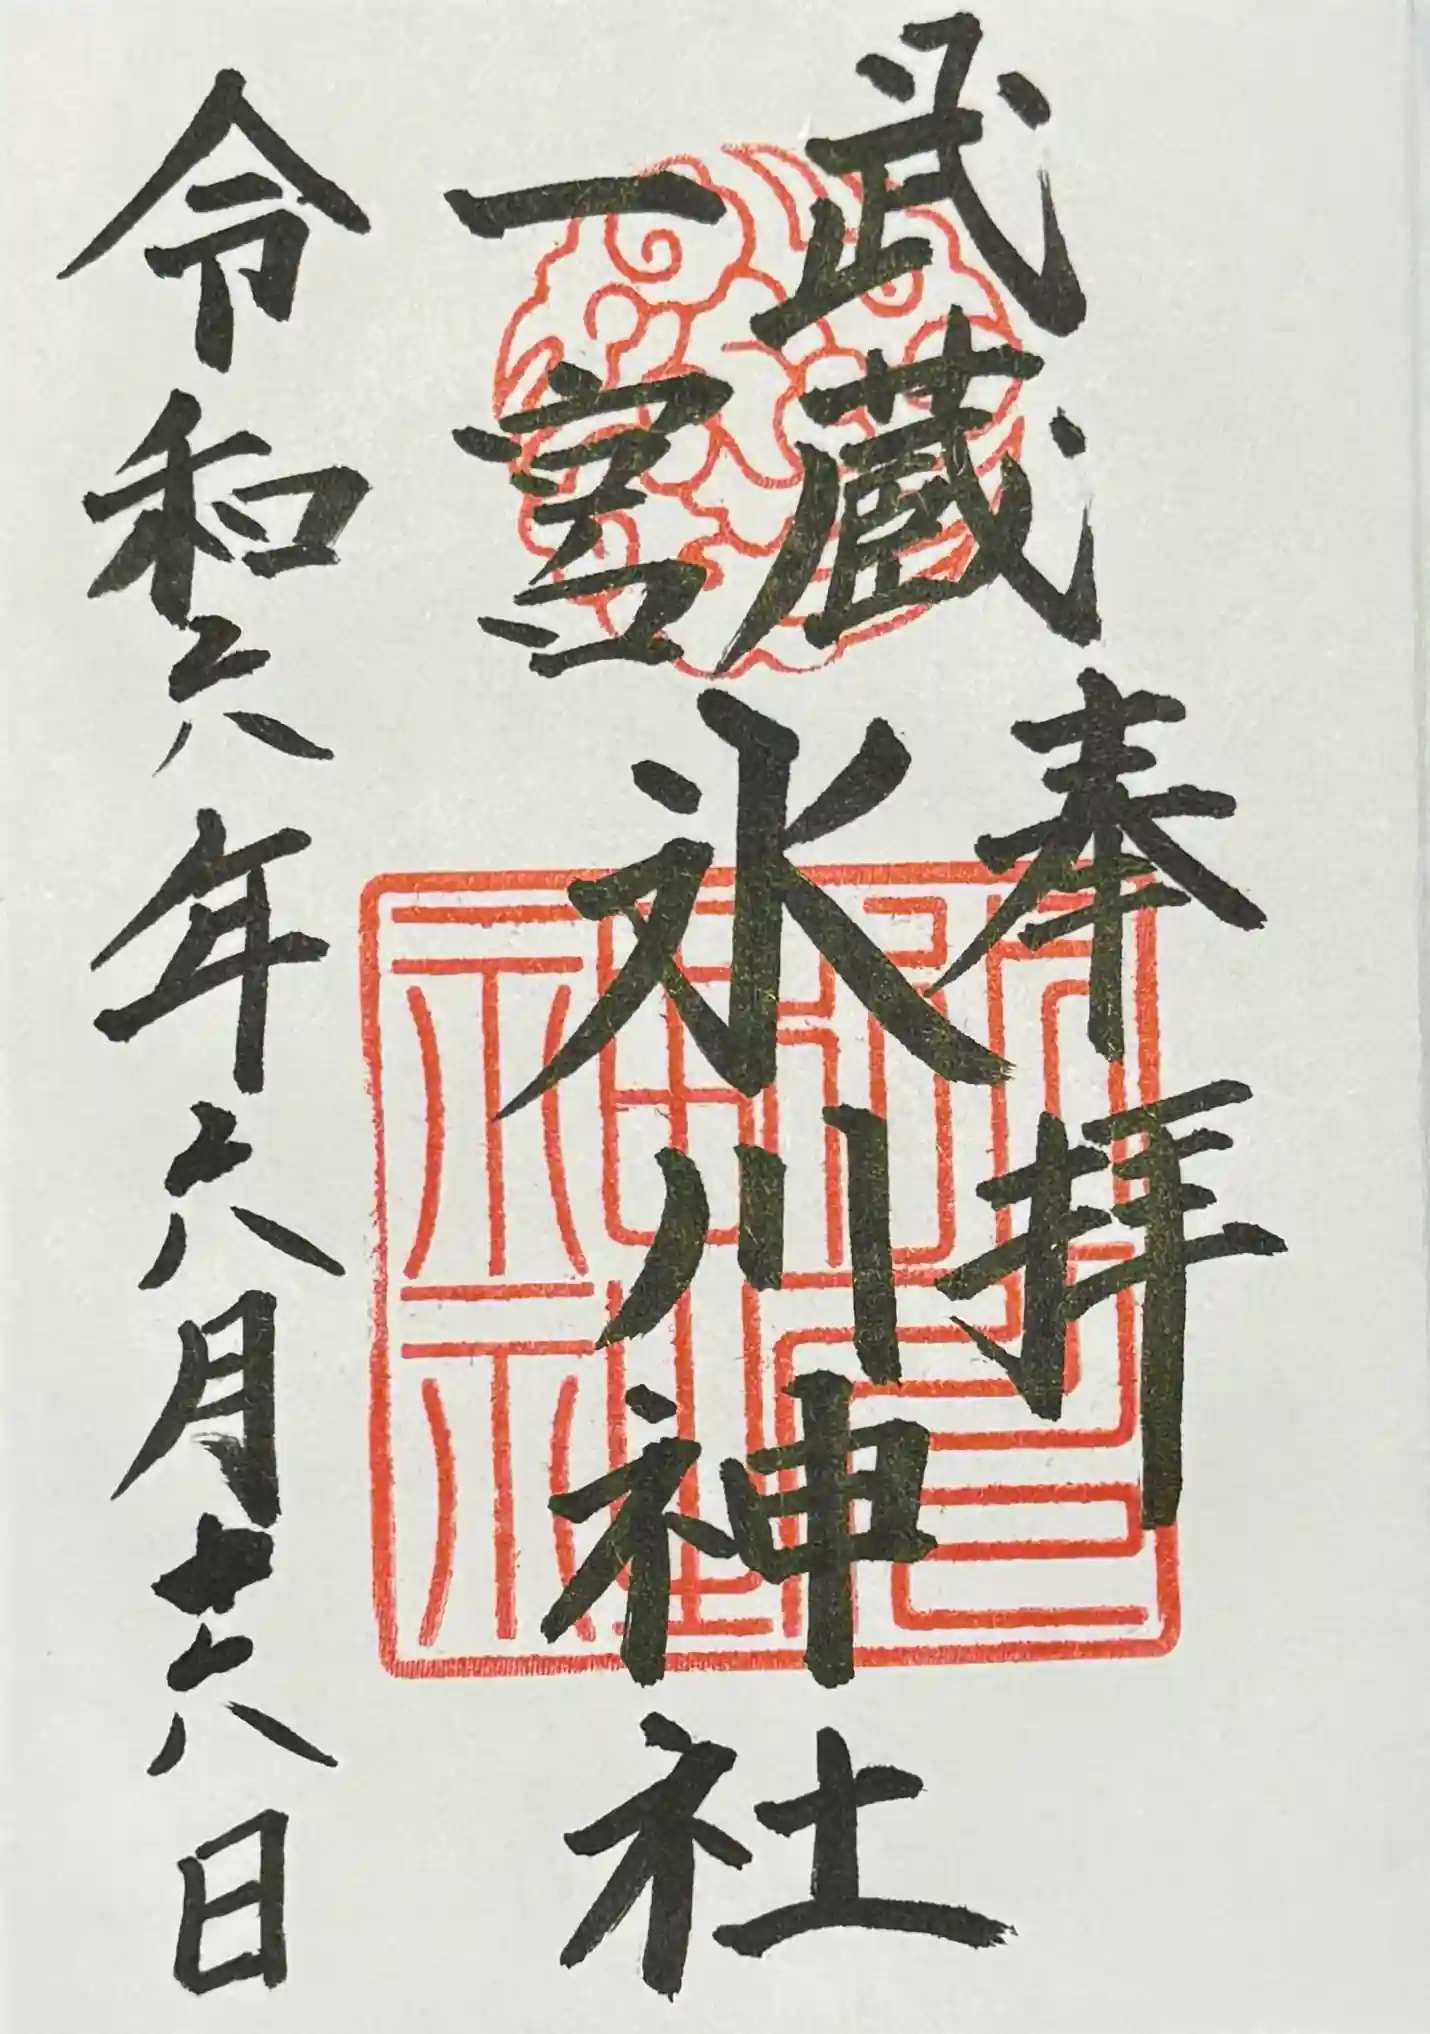 奉拝
武蔵
一宮
氷川神社
氷川神社
令和六年六月十六日